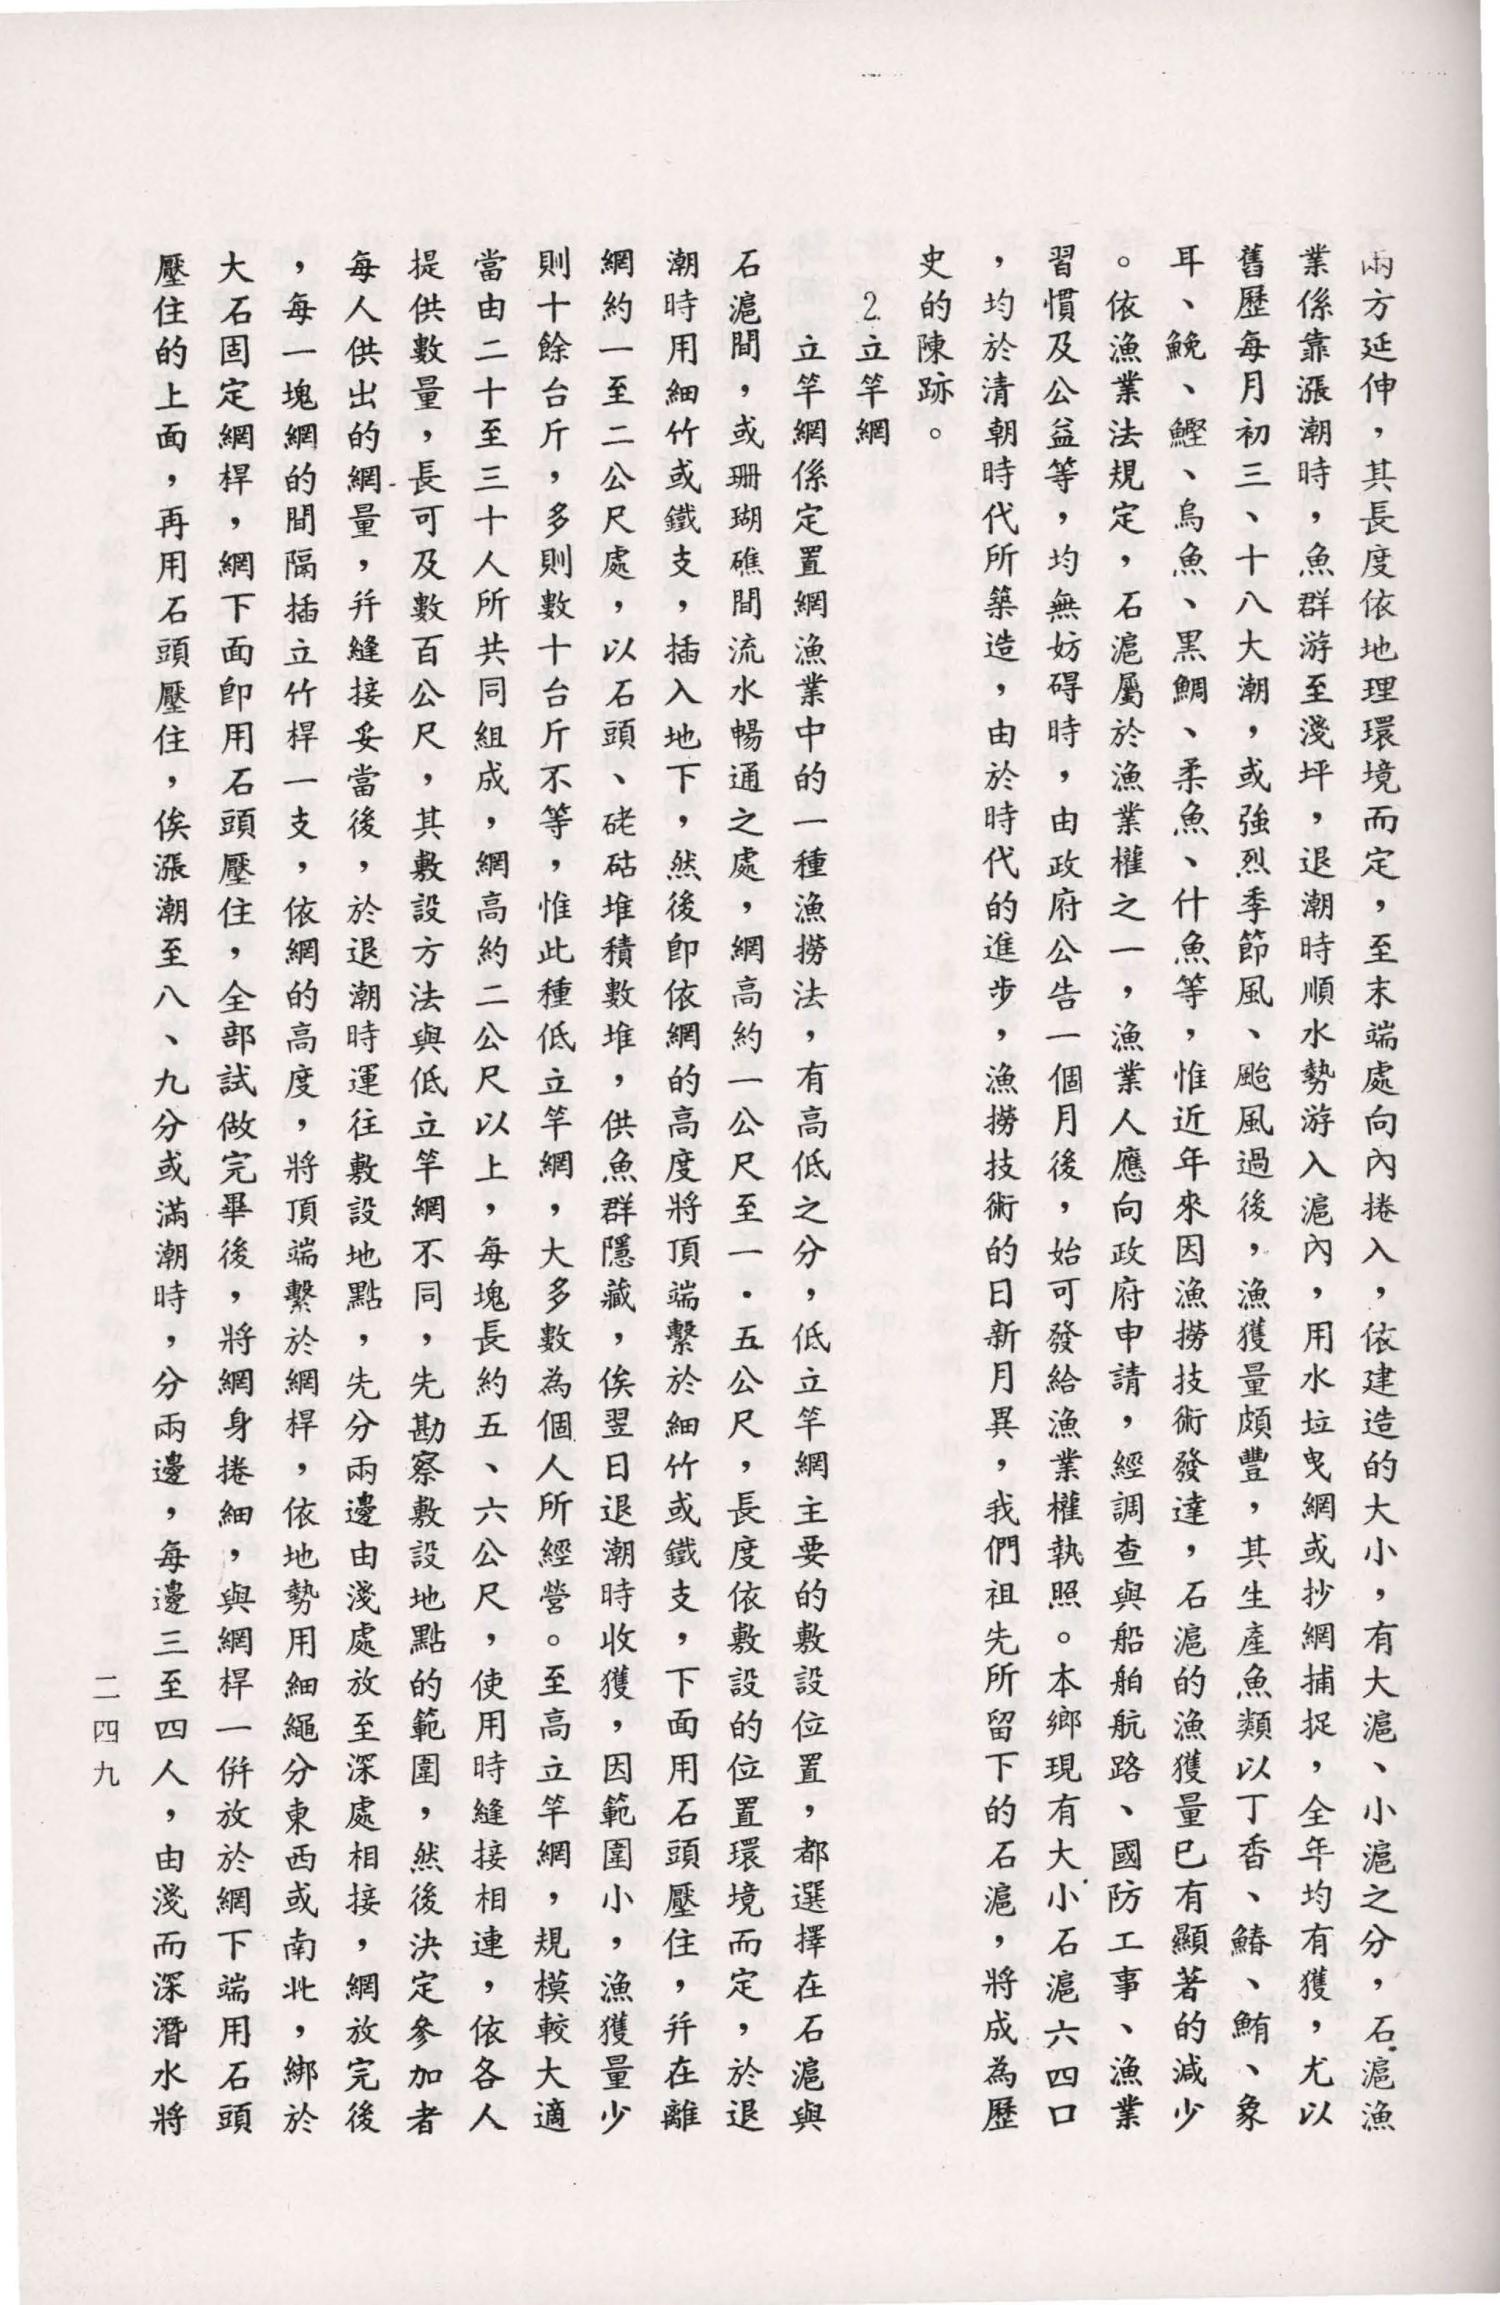 兩方延伸，其長度依地理環境而定，至末端處向內捲入，依建造的大小，有大滬、小滬之分，石滬漁
業係靠漲潮時，魚群游至淺坪，退潮時順水勢游入滬內，用水垃曳網或抄網捕捉，全年均有獲，尤以
舊歷每月初三、十八大潮，或強烈季節風、颱風過後，漁獲量頗豐，其生產魚類以丁香、鰆、鮪、象
耳、鮸、鰹、烏魚、黑鯛、柔魚、什魚等，惟近年來因漁撈技術發達，石滬的漁獲量已有顯著的減少
。依漁業法規定，石滬屬於漁業權之一，漁業人應向政府申請，經調查與船舶航路、國防工事、漁業
習慣及公益等，均無妨碍時，由政府公告一個月後，始可發給漁業權執照。本鄉現有大小石滬六四口
，均於清朝時代所築造，由於時代的進步，漁撈技術的日新月異，我們祖先所留下的石滬，將成為歷
史的陳跡。
2.立竿網
立竿網係定置網漁業中的一種漁撈法，有高低之分，低立竿網主要的敷設位置，都選擇在石滬與
石滬間，或珊瑚礁間流水暢通之處，網高約一公尺至一．五公尺，長度依敷設的位置環境而定，於退
潮時用細竹或鐵支，插入地下，然後卽依網的高度將頂端繫於細竹或鐵支，下面用石頭壓住，幷在離
網約一至二公尺處，以石頭、硓𥑮堆積數堆，供魚群隱藏，俟翌日退潮時收獲，因範圍小，漁獲量少
則十餘台斤，多則數十台斤不等，惟此種低立竿網，大多數為個人所經營。至高立竿網，規模較大適
當由二十至三十人所共同組成，網高約二公尺以上，每塊長約五、六公尺，使用時縫接相連，依各人
提供數量，長可及數百公尺，其敷設方法與低立竿網不同，先勘察敷設地點的範圍，然後決定參加者
每人供出的網量，幷縫接妥當後，於退潮時運往敷設地點，先分兩邊由淺處放至深處相接，網放完後
，每一塊網的間隔插立竹桿一支，依網的高度，將頂端繫於網桿，依地勢用細繩分東西或南北，綁於
大石固定網桿，網下面卽用石頭壓住，全部試做完畢後，將網身捲細，與網桿一倂放於網下端用石頭
壓住的上面，再用石頭壓住，俟漲潮至八、九分或滿潮時，分兩邊，每邊三至四人，由淺而深潛水將
二四九